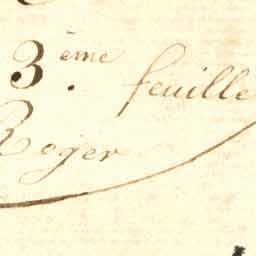 3.ème feuille
Roger